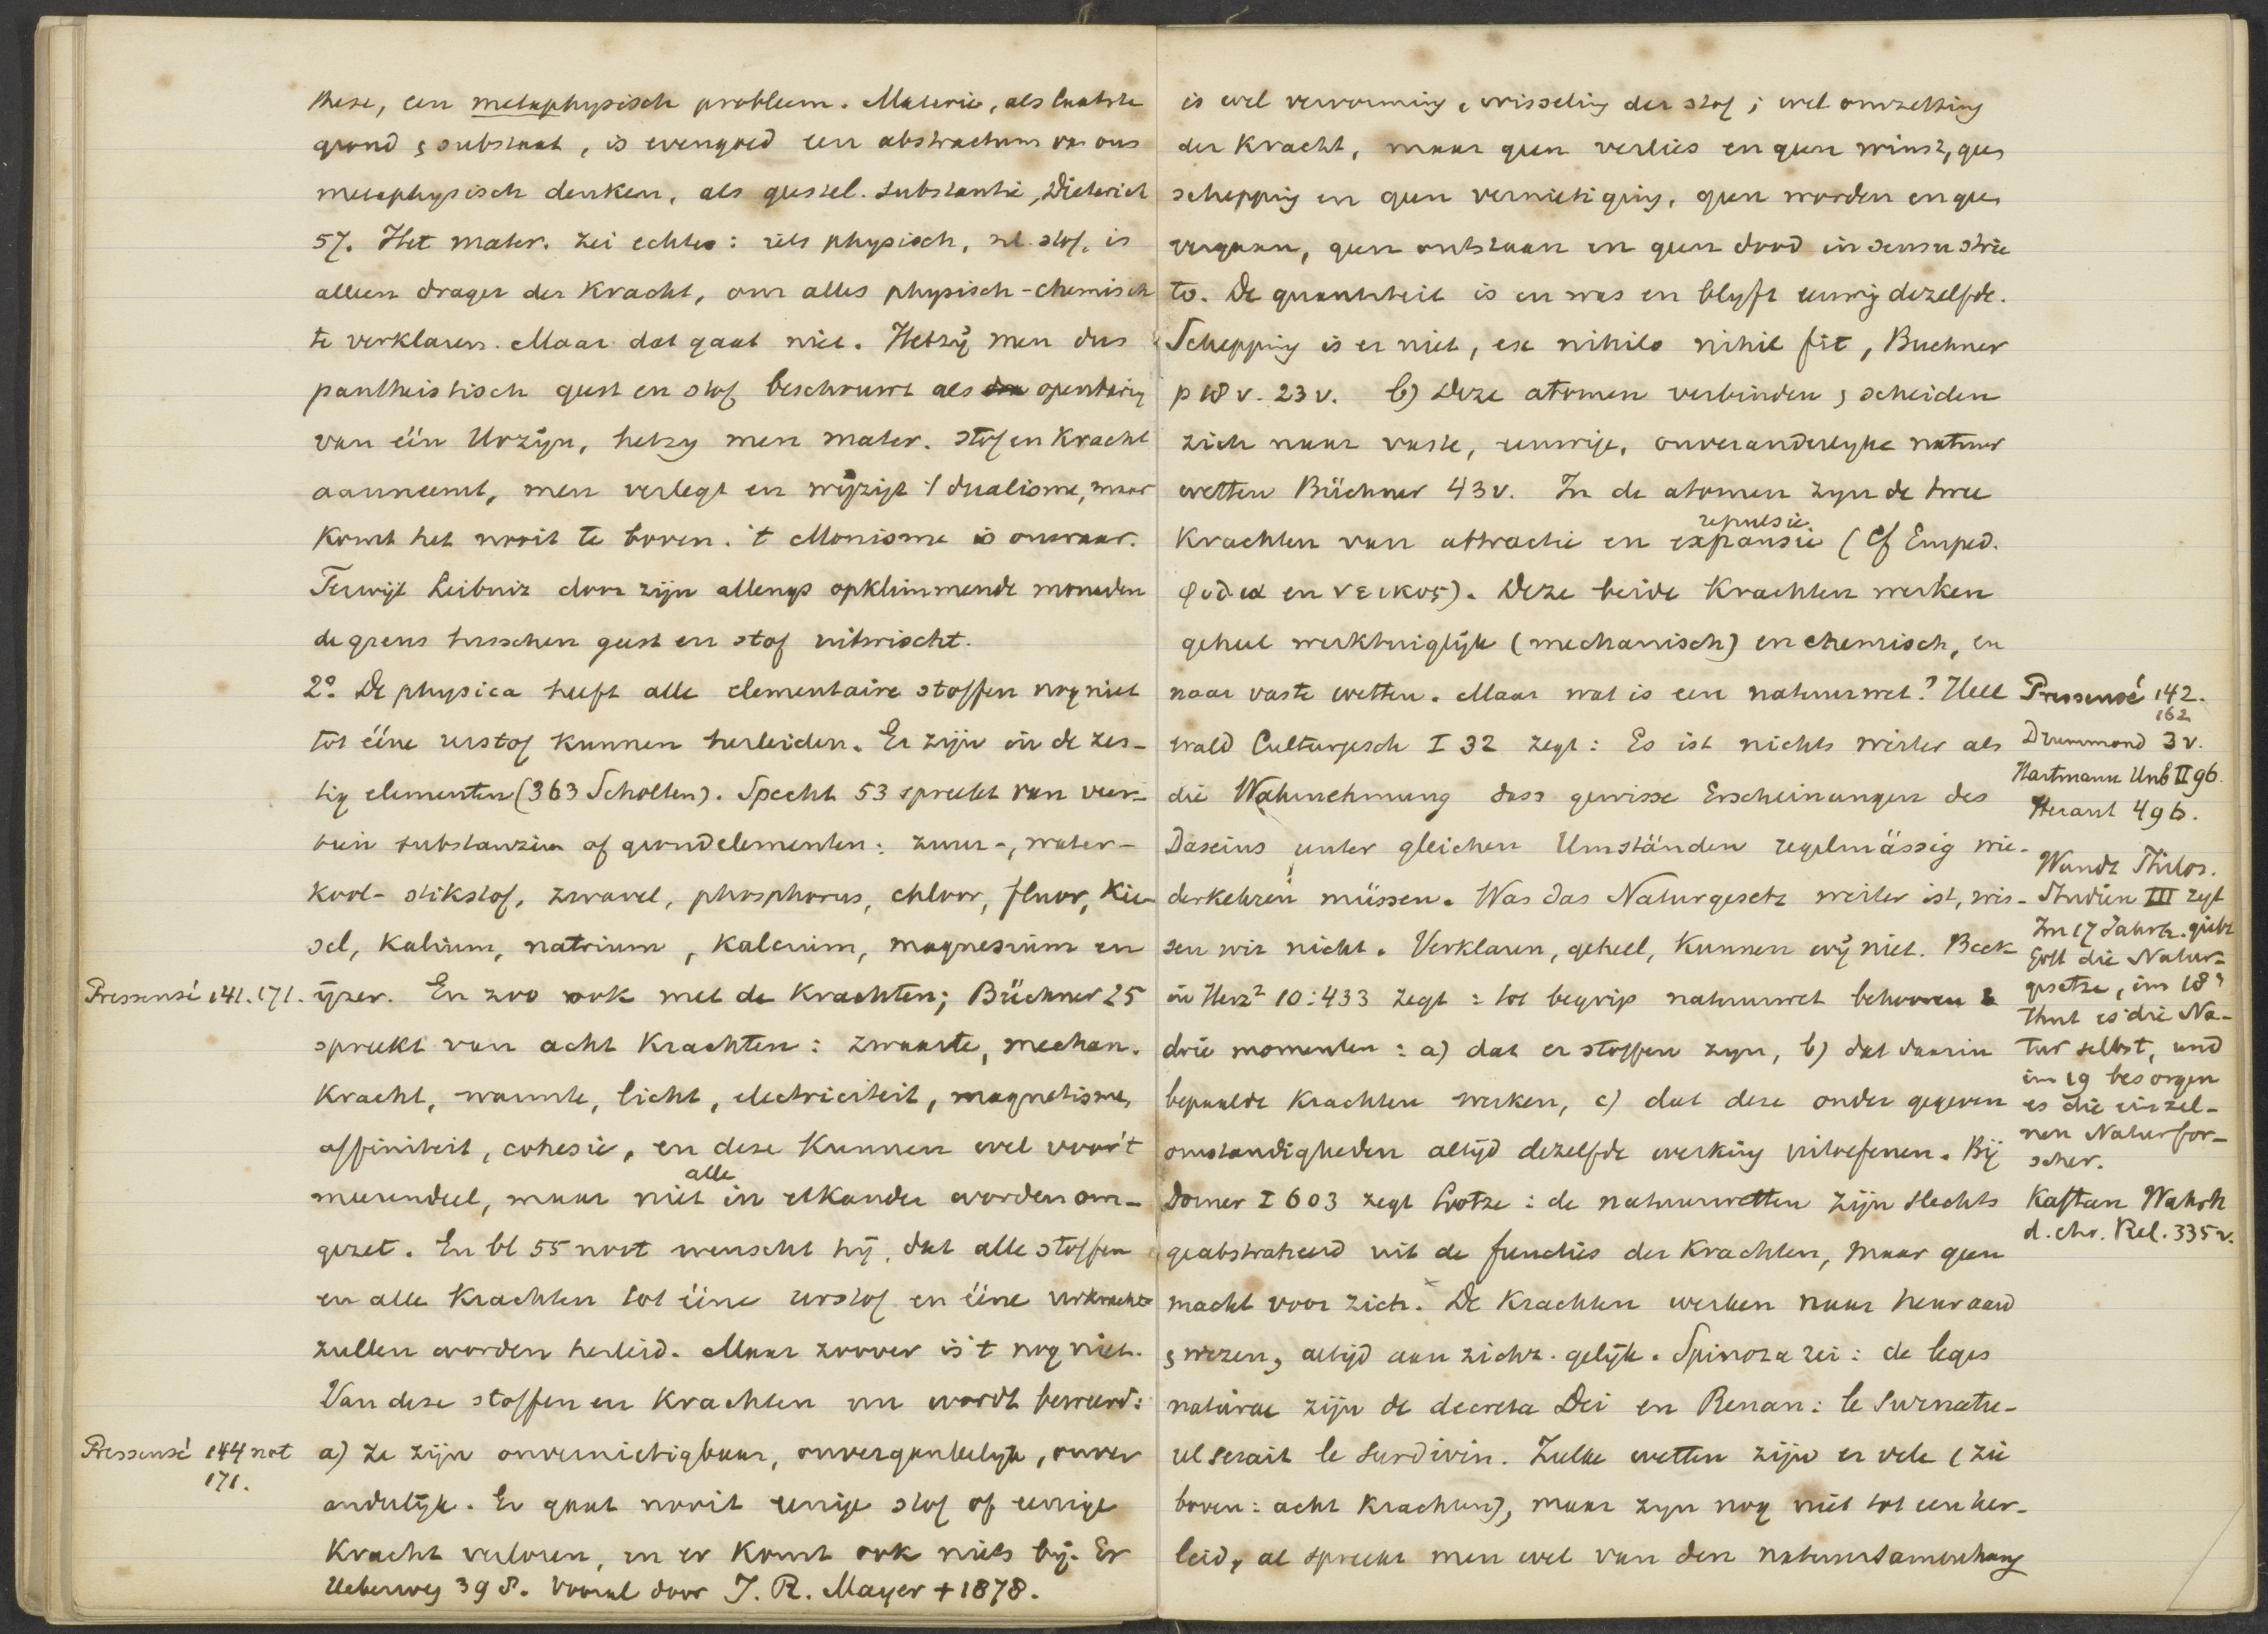 these, een metaphysisch probleem. Materie, als laatste
grond & substraat, is evengoed een abstractum van ons
metaphysisch denken, als geestel. substantie, Dieterich
57. Het mater. zei echter: iets physisch, nl. stof, is
alleen drager der Kracht, om alles physisch-chemisch
te verklaren. Maar dat gaat niet. Hetzij men dus
pantheistisch geest en stof beschouwt als openbaring
van één Urzijn, hetzy men mater. stof en Kracht
aanneemt, men verlegt en wijzigt 't dualisme, maar
komt het nooit te boven. 't Monisme is onwaar.
Terwijl Leibniz door zijn allengs opklimmende monaden
de grens tusschen geest en stof uitwischt.
2º. De physica heeft alle elementaire stoffen nog niet
tot ééne urstof kunnen herleiden. Er zijn in de zes-
tig elementen (363 Scholten). Specht 53 spreekt van veer-
tien substanzien of grondelementen: zuur-, water-
kool- stikstof, zwavel, phosphorus, chloor, fluor, Kie-
sel, Kalium, natrium, Kalcium, magnesium en
Pressensé 141.171. ijzer. En zoo ook met de Krachten; Büchner 25
spreekt van acht Krachten: zwaarte, mechan.
Kracht, warmte, licht, electriciteit, magnetisme,
affiniteit, cohesie, en deze kunnen wel voor 't
meerendeel, maar niet alle in elkander worden om-
gezet. En bl 55 noot wenscht hij, dat alle stoffen
en alle Krachten tot ééne urstof en ééne urkracht
zullen worden herleid. Maar zoover is 't nog niet.
Van deze stoffen en Krachten nu wordt beweerd:
Pressensé 144 not a) ze zijn onvernietigbaar, onvergankelijk, onver
171.
anderlijk. Er gaat nooit eenige stof of eenige
Kracht verloren, en er komt ook niets bij. Er
Ueberweg 398. vooral door J. R. Mayer + 1878.
is wel vervorming, wisseling der stof; wel omzetting
der Kracht, maar geen verlies en geen winst, geen
schepping en geen vernietiging, geen worden en geen
vergaan, geen ontstaan en geen dood in sensu stric
to. De quantiteit is en was en blyft eeuwig dezelfde.
Schepping is er niet, ex nihilo nihil fit, Buchner
p 18 v. 23 v. b) Deze atomen verbinden & scheiden
zich naar vaste, eeuwige, onveranderlyke natuur
wetten Büchner 43 v. In de atomen zyn de twee
repulsie
Krachten van attractie en expansie (Cf Emped.
φιλια en νεικος). Deze beide Krachten werken
geheel werktuiglijk (mechanisch) en chemisch, en
naar vaste wetten. Maar wat is een natuurwet? Hell
wald Culturgesch I 32 zegt: Es ist nichts weiter als
die Wahrnehmung dass gewisse Erscheinungen des
Daseins unter gleichen Umständen regelmässig wie-
derkehren müssen. Was das Naturgesetz weiter ist, wis-
sen wir nicht. Verklaren, geheel, kunnen wij niet. Beck
in Herz² 10:433 zegt: tot begrip natuurwet behooren
drie momenten: a) dat er stoffen zyn, b) dat daarin
bepaalde Krachten werken, c) dat deze onder gegeven
omstandigheden altijd dezelfde werking uitoefenen. Bij
Dorner I 603 zegt Lotze: de natuurwetten zijn slechts
geabstraheerd uit de functies der Krachten, maar geen
macht voor zich. De Krachten werken naar heur aard
& wezen, altijd aan zichz. gelijk. Spinoza zei: de leges
naturae zijn de decreta Dei en Renan: le Surnatu-
rel serait le surdivin. Zulke wetten zijn er vele (zie
boven: acht Krachten), maar zyn nog niet tot een her-
leid, al spreekt men wel van den natuursamenhang
Pressensé 142.
162
Drummond 3 v.
Hartmann Unb II 96.
Heraut 496.
Wundt Philos.
Studien III zegt
Im 17 Jahrh. giebt
Gott die Natur-
gesetze, im 18n
thut es die Na-
tur selbst, und
im 19 besorgen
es die einzel-
nen Naturfor-
scher.
Kaftan Wahrh
d. chr. Rel. 335 v.